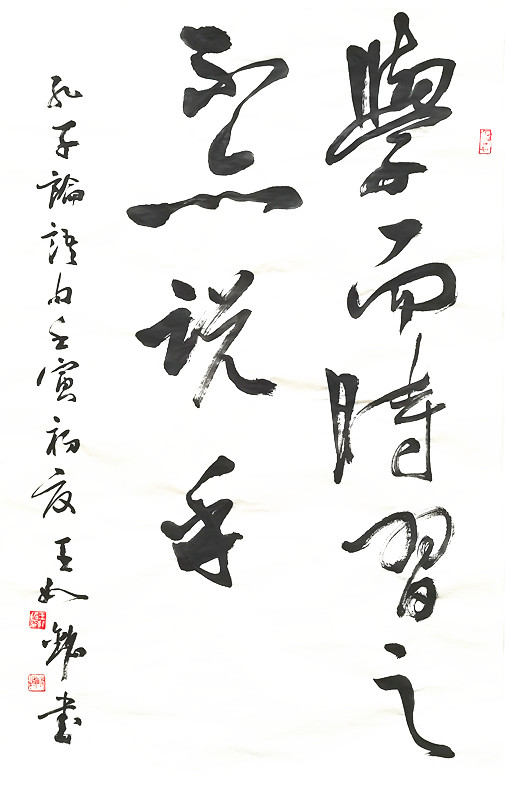 學而時習之
不亦说乎
孔子論語句壬寅初夏王書